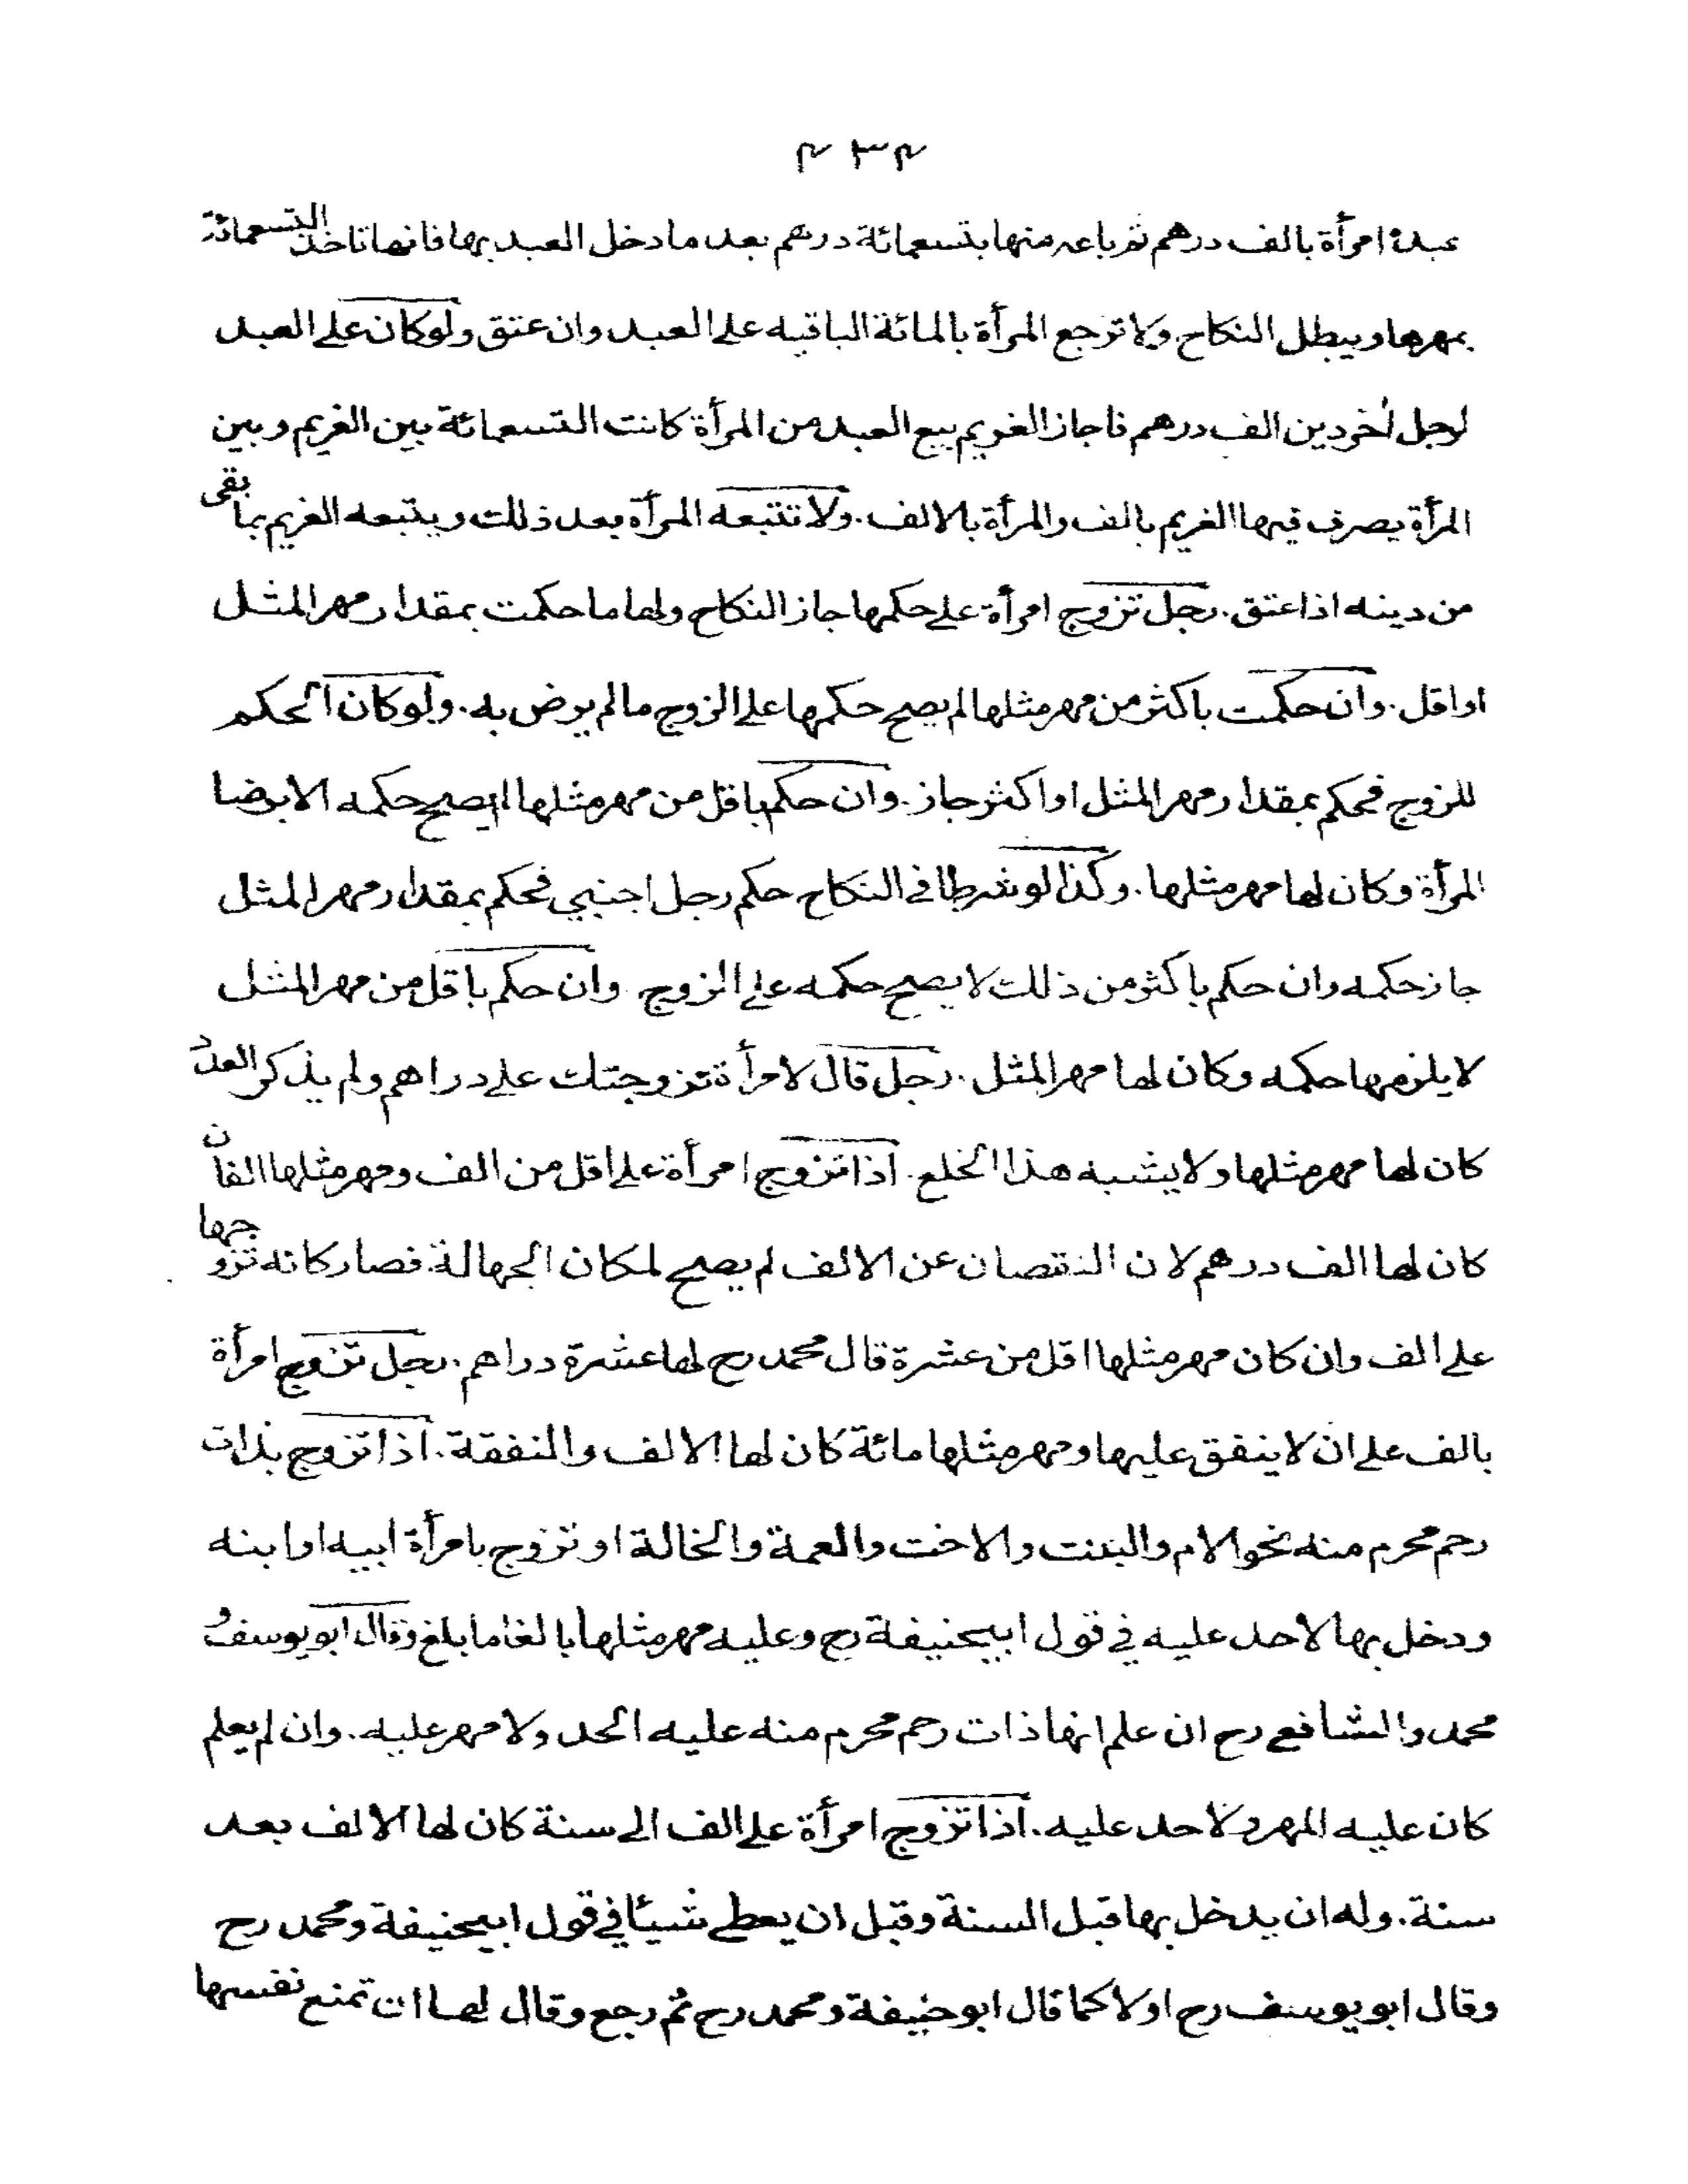 ۴۳۴
عبدہ امرأة بالف درهم ثم باعه منها بتسعمائة درهم بعد ما دخل العبد بها فانها تاخذ التسعمائة
بمهرها ويبطل النكاح ولا ترجع المرأة بالمائة الباقيه على العبد وان عتق ولوكان على العبد
لرجل اٰخر دين الف درهم فاجاز الغريم بيع العبد من المرأة كانت التسعمائة بين الغريم وبين
المرأة يصرف فيها الغريم بالف والمرأة بالالف. ولا تتبعه المرأة بعد ذلك ويتبعه الغريم بما بقى
من دينه اذا عتق. رجل تزوج امرأة على حكمها جاز النكاح ولها ما حكمت بمقدار مهر المثل
او اقل. وان حكمت باكثر من مهر مثلها لم يصح حكمها على الزوج مالم يرض به. ولوكان الحكم
للزوج فحكم بمقدار مهر المثل او اكثر جاز. وان حكم باقل من مهر مثلها لم يصح حكمه الا برضا
المرأة وكان لها مهر مثلها. وكذا لو شرطا في النكاح حكم رجل اجنبي فحكم بمقدار مهر المثل
جاز حكمه وان حكم باكثر من ذلك لا يصح حكمه على الزوج وان حكم باقل من مهر المثل
لا يلزمها حكمه وكان لها مهر المثل. رجل قال لامرأة تزوجتك على دراهم ولم يذكر العدد
كان لها مهر مثلها ولا يشبه هذا الخلع. اذا تزوج امرأة على اقل من الف ومهر مثلها الفان
كان لها الف درهم لان النقصان عن الالف لم يصح لمكان الجهالة فصار كانه تزوجها
على الف وان كان مهر مثلها اقل من عشرة قال محمد رح لها عشرة دراهم. رجل تزوج امرأة
بالف على ان لا ينفق عليها ومهر مثلها مائة كان لها الالف والنفقة. اذا تزوج بذات
رحم محرم منه نحو الام والبنت والاخت والعمة والخالة او تزوج بامرأة ابيه او ابنه
ودخل بها لاحد عليه في قول ابيحنيفة رح وعليه مهر مثلها بالغا ما بلغ وقال ابو يوسف و
محمد والشافعي رح ان علم انها ذات رحم محرم منه عليه الحد ولا مهر عليه. وان لم يعلم
كان عليه المهر ولا حد عليه. اذا تزوج امرأة على الف الى سنة كان لها الالف بعد
سنة. وله ان يدخل بها قبل السنة وقبل ان يعطى شيئا في قول ابيحنيفة ومحمد رح
وقال ابو يوسف رح اولا كما قال ابو حنيفة ومحمد رح ثم رجع وقال لها ان تمنع نفسها